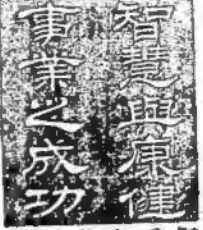 智慧與康健
事業之成功